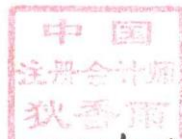 中国
注册会计师
狄香雨